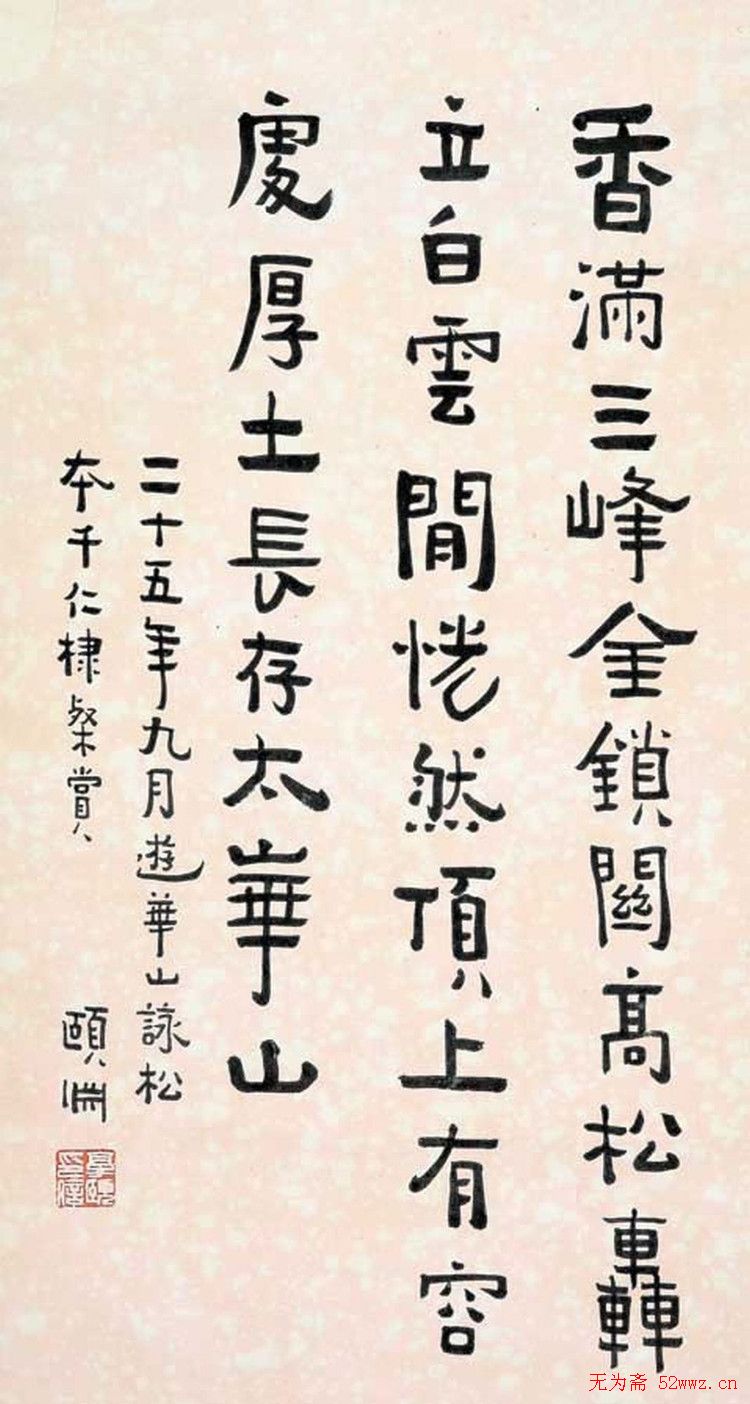 香滿三峰金鎖關高松轟
立白雲閒恍然頂上有容
處厚土長存太崋山
二十五年九月遊華山詠松
本千仁棣粲賞 頤淵
无为斋 52wwz.cn